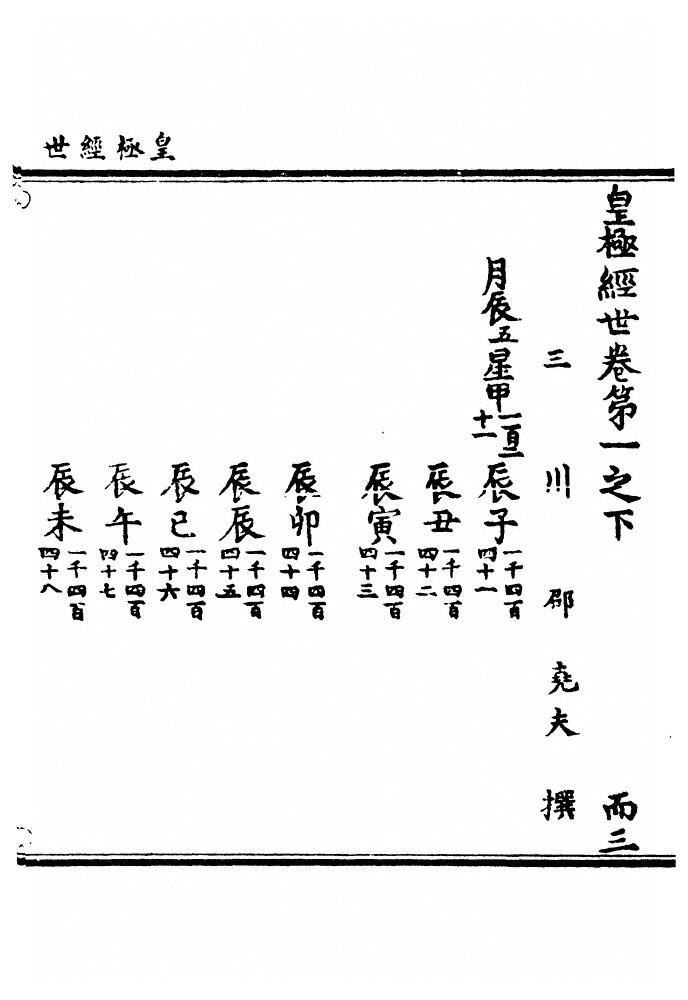 皇極經世
皇極經世卷第一之下 而三
三川 邵堯夫 撰
月辰五星甲一百二十一
辰子一千四百四十一
辰丑一千四百四十二
辰寅一千四百四十三
辰卯一千四百四十四
辰辰一千四百四十五
辰巳一千四百四十六
辰午一千四百四十七
辰未一千四百四十八